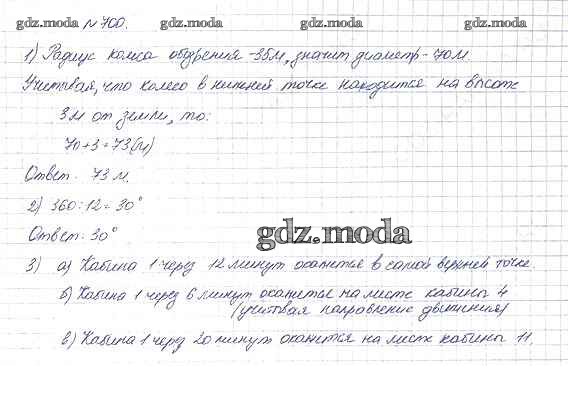 gdz.moda № 700. gdz.moda gdz.moda gdz.moda
1) Радиус колеса обозрения - 35м, значит диаметр - 70м.
Учитывая, что колесо в нижней точке находится на высоте
3м от земли, то:
70+3=73(м)
Ответ: 73 м.
2) 360:12=30°
Ответ: 30°
gdz.moda
3) а) Кабина 1 через 12 минут окажется в самой верхней точке.
б) Кабина 1 через 6 минут окажется на месте кабины 4
(учитывая направление движения)
в) Кабина 1 через 20 минут окажется на месте кабины 11.